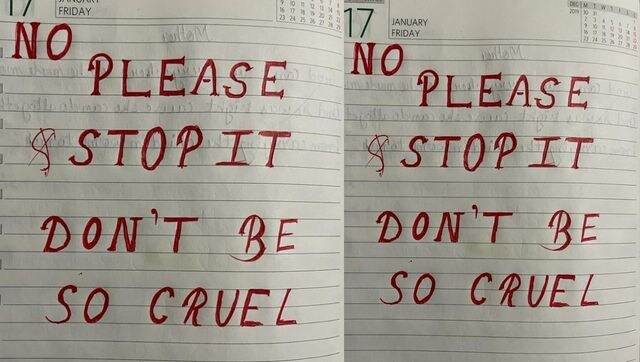 17
JANUARY
FRIDAY
NO
PLEASE
STOP IT
DON'T BE
SO CRUEL
17
JANUARY
FRIDAY
DEC
2019
M T W T F S S
NO
PLEASE
STOP IT
DON'T BE
SO CRUEL